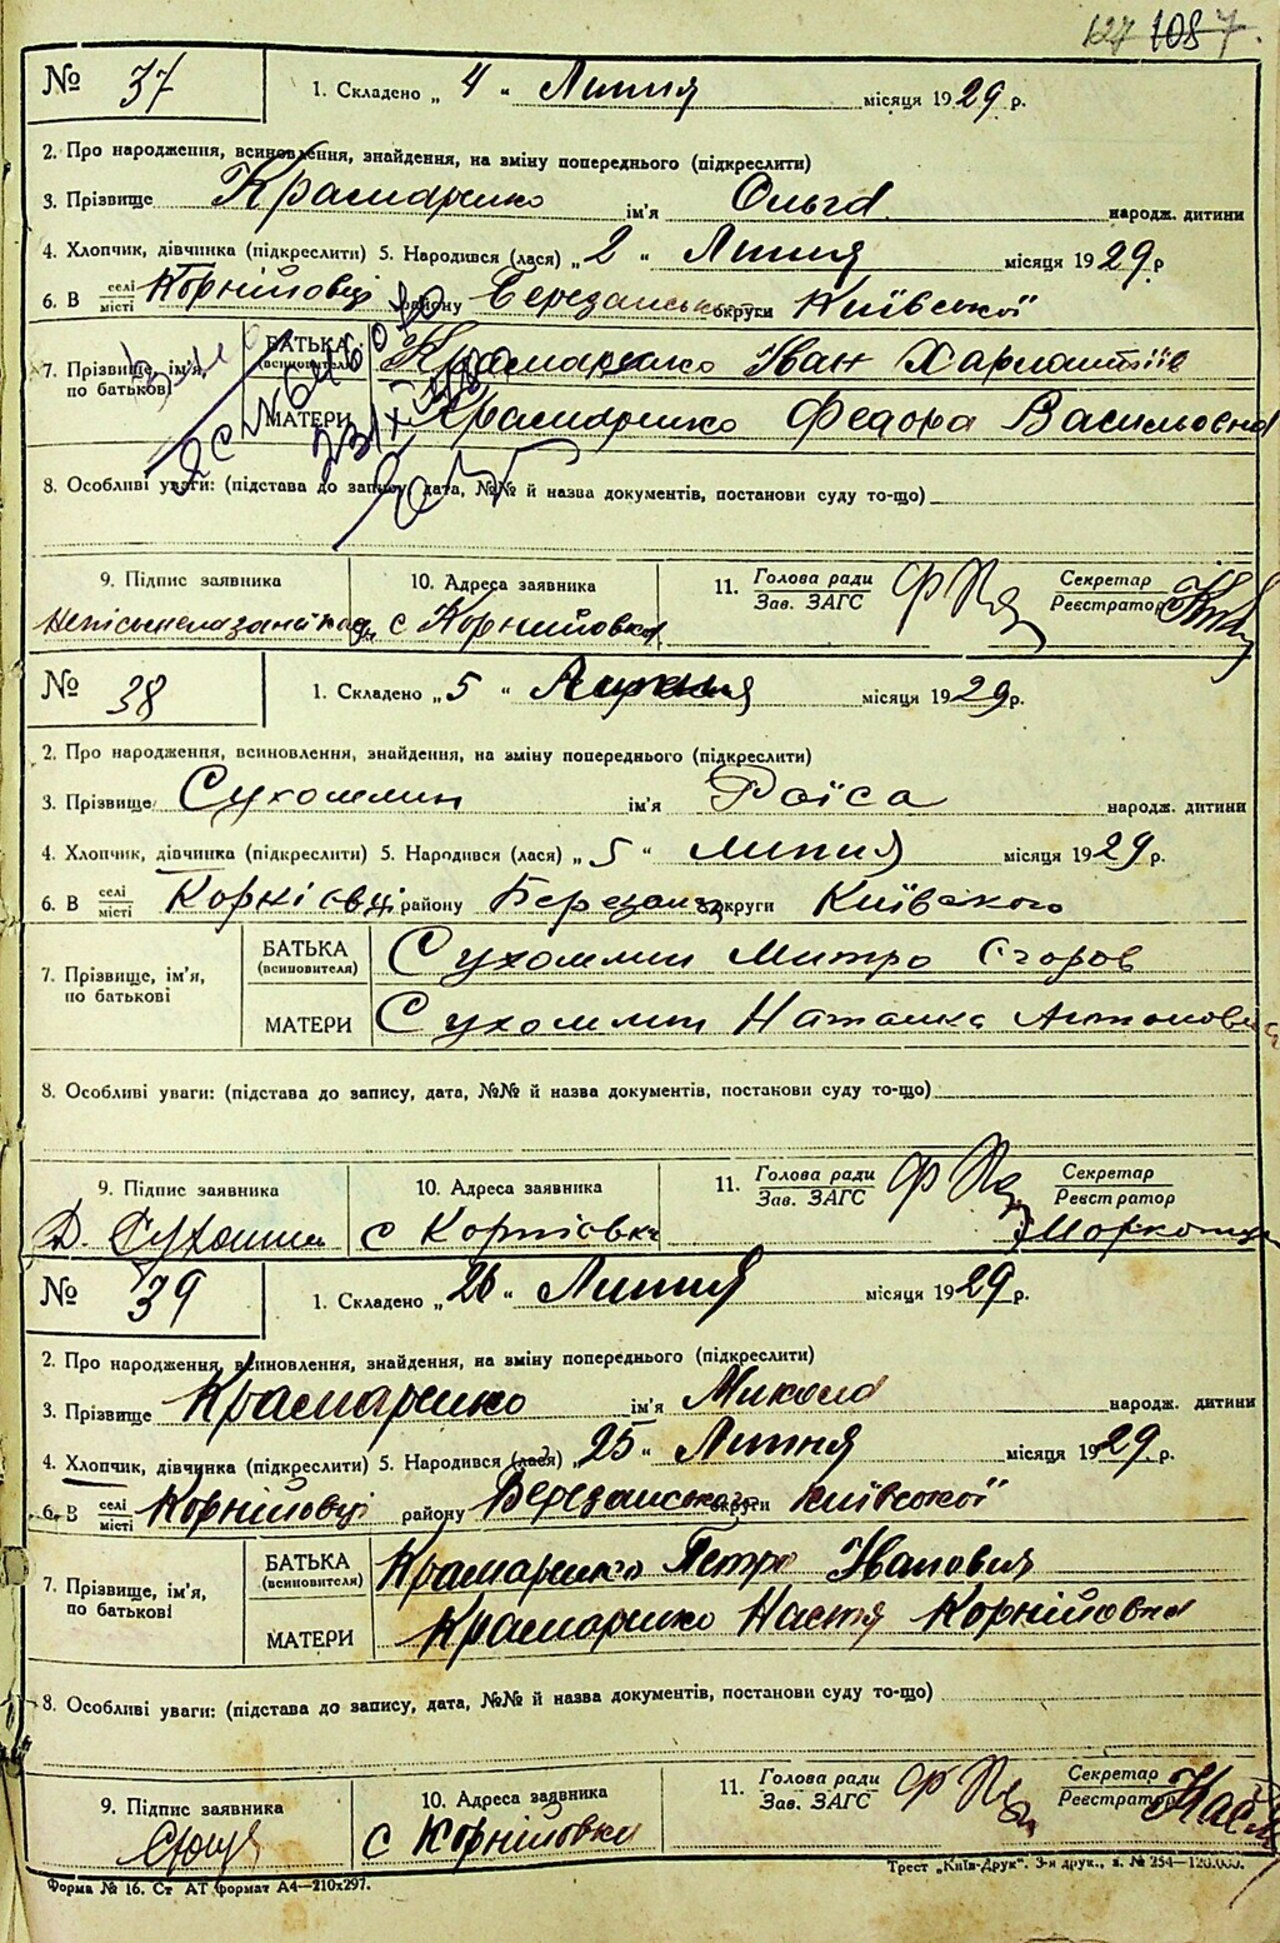 127 108 7.
№ 37
1. Складено „ 4 " Липня місяця 1929 р.
2. Про народження, всиновлення, знайдення, на зміну попереднього (підкреслити)
3. Прізвище Крамаренко ім'я Ольга народж. дитини
4. Хлопчик, дівчинка (підкреслити) 5. Народився (лася) „ 2 " Липня місяця 1929 р
6. В селі/місті Корнійовці району Березанського округи Київської
7. Прізвище, ім'я, по батькові
БАТЬКА (всиновителя) Крамаренко Іван Харлампіїв
МАТЕРИ Крамаренко Федора Васильовна
8. Особливі уваги: (підстава до запису, дата, №№ й назва документів, постанови суду то-що)
9. Підпис заявника 10. Адреса заявника 11. Голова ради Секретар
Зав. ЗАГС Реєстратор
с Корнийовка
№ 38
1. Складено „ 5 " місяця 1929 р.
2. Про народження, всиновлення, знайдення, на зміну попереднього (підкреслити)
3. Прізвище Сухомлин ім'я Раїса народж. дитини
4. Хлопчик, дівчинка (підкреслити) 5. Народився (лася) „ 5 " липня місяця 1929 р.
6. В селі/місті Корнієвці району Березань округи Київського
7. Прізвище, ім'я, по батькові
БАТЬКА (всиновителя) Сухомлин Митро Єгоров
МАТЕРИ Сухомлин Наташка Антоновна
8. Особливі уваги: (підстава до запису, дата, №№ й назва документів, постанови суду то-що)
9. Підпис заявника 10. Адреса заявника 11. Голова ради Секретар
Зав. ЗАГС Реєстратор
Д. Сухомлин с Корнієвка
№ 39
1. Складено „ 26 " Липня місяця 1929 р.
2. Про народження, всиновлення, знайдення, на зміну попереднього (підкреслити)
3. Прізвище Крамаренко ім'я Микола народж. дитини
4. Хлопчик, дівчинка (підкреслити) 5. Народився (лася) „ 25 " Липня місяця 1929 р.
6. В селі/місті Корнійовці району Березанського округи Київської
7. Прізвище, ім'я, по батькові
БАТЬКА (всиновителя) Крамаренко Петро Іванович
МАТЕРИ Крамаренко Настя Корнійовна
8. Особливі уваги: (підстава до запису, дата, №№ й назва документів, постанови суду то-що)
9. Підпис заявника 10. Адреса заявника 11. Голова ради Секретар
Зав. ЗАГС Реєстратор
с Корнійовка
Форма № 16. Ст АТ формат А4—210х297.
Трест „Київ-Друк". 3-я друк., з. № 254—120.000.